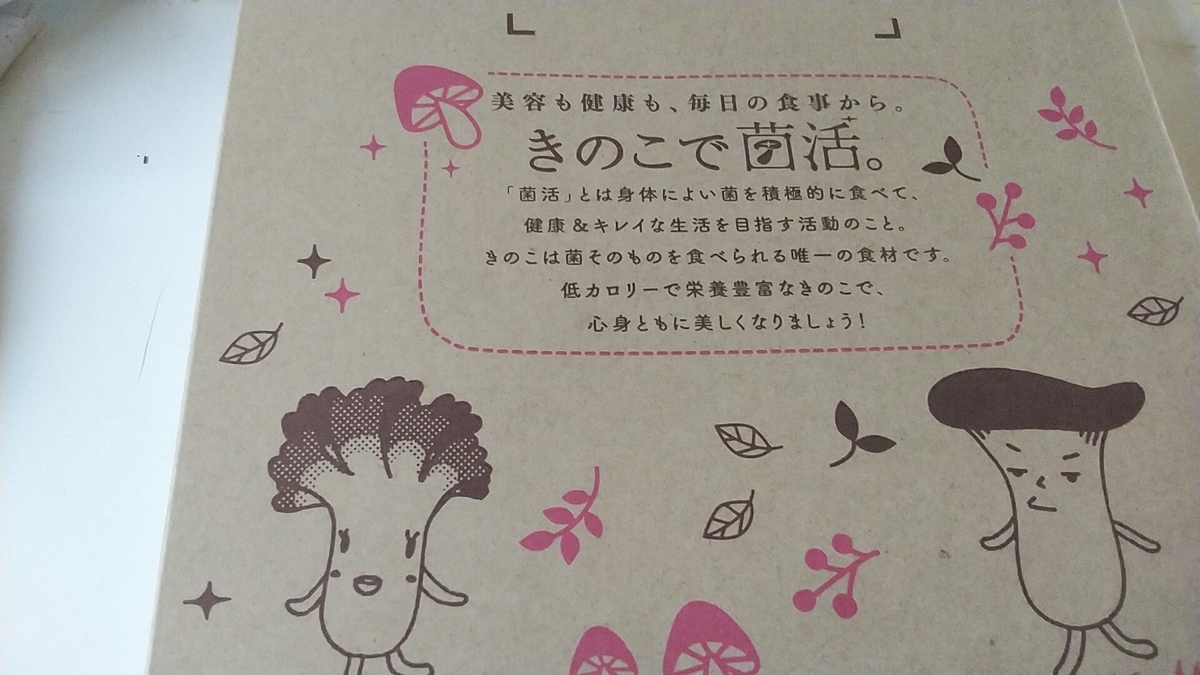 美容も健康も、毎日の食事から。
きのこで菌活。
「菌活」とは身体によい菌を積極的に食べて、
健康&キレイな生活を目指す活動のこと。
きのこは菌そのものを食べられる唯一の食材です。
低カロリーで栄養豊富なきのこで、
心身ともに美しくなりましょう!